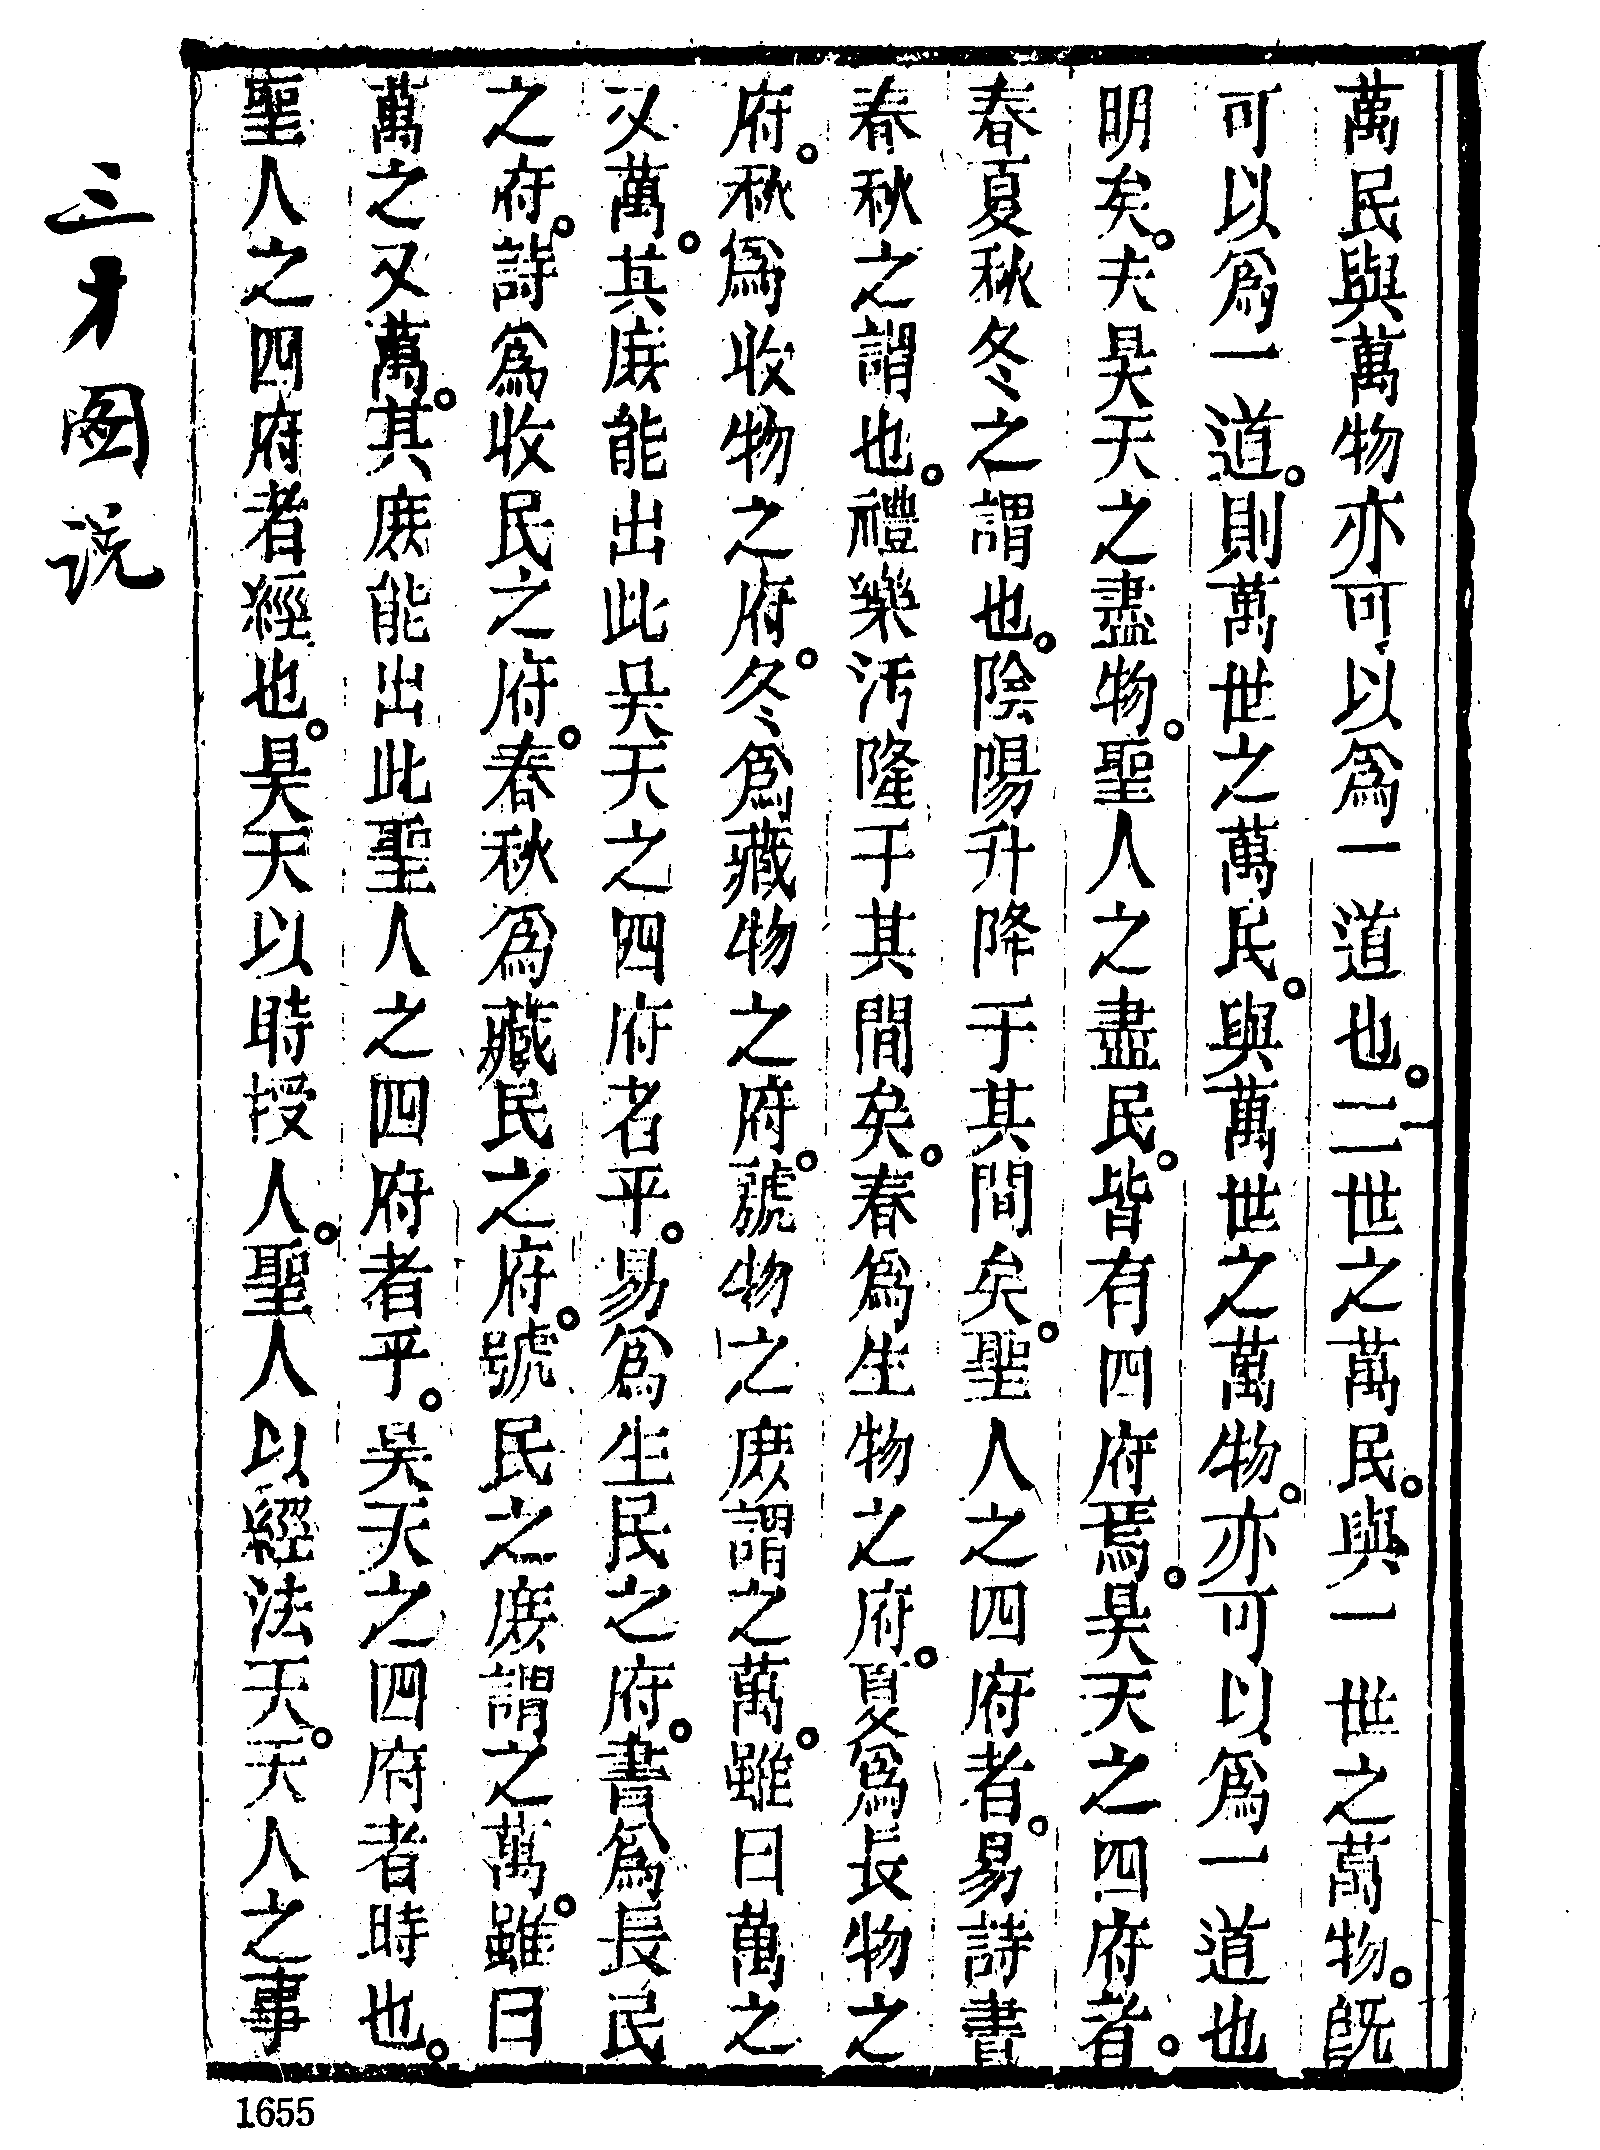 萬民與萬物亦可以爲一道也。二世之萬民。與一世之萬物。旣
可以爲一道。則萬世之萬民。與萬世之萬物。亦可以爲一道也
明矣。夫昊天之盡物。聖人之盡民。皆有四府焉。昊天之四府者。
春夏秋冬之謂也。陰陽升降于其間矣。聖人之四府者。易詩書
春秋之謂也。禮樂汚隆于其間矣。春爲生物之府。夏爲長物之
府。秋爲收物之府。冬爲藏物之府。號物之庶謂之萬。雖曰萬之
又萬。其庶能出此昊天之四府者乎。易爲生民之府。書爲長民
之府。詩爲收民之府。春秋爲藏民之府。號民之庶謂之萬。雖曰
萬之又萬。其庶能出此聖人之四府者乎。昊天之四府者時也。
聖人之四府者經也。昊天以時授人。聖人以經法天。天人之事
三才图说
1655